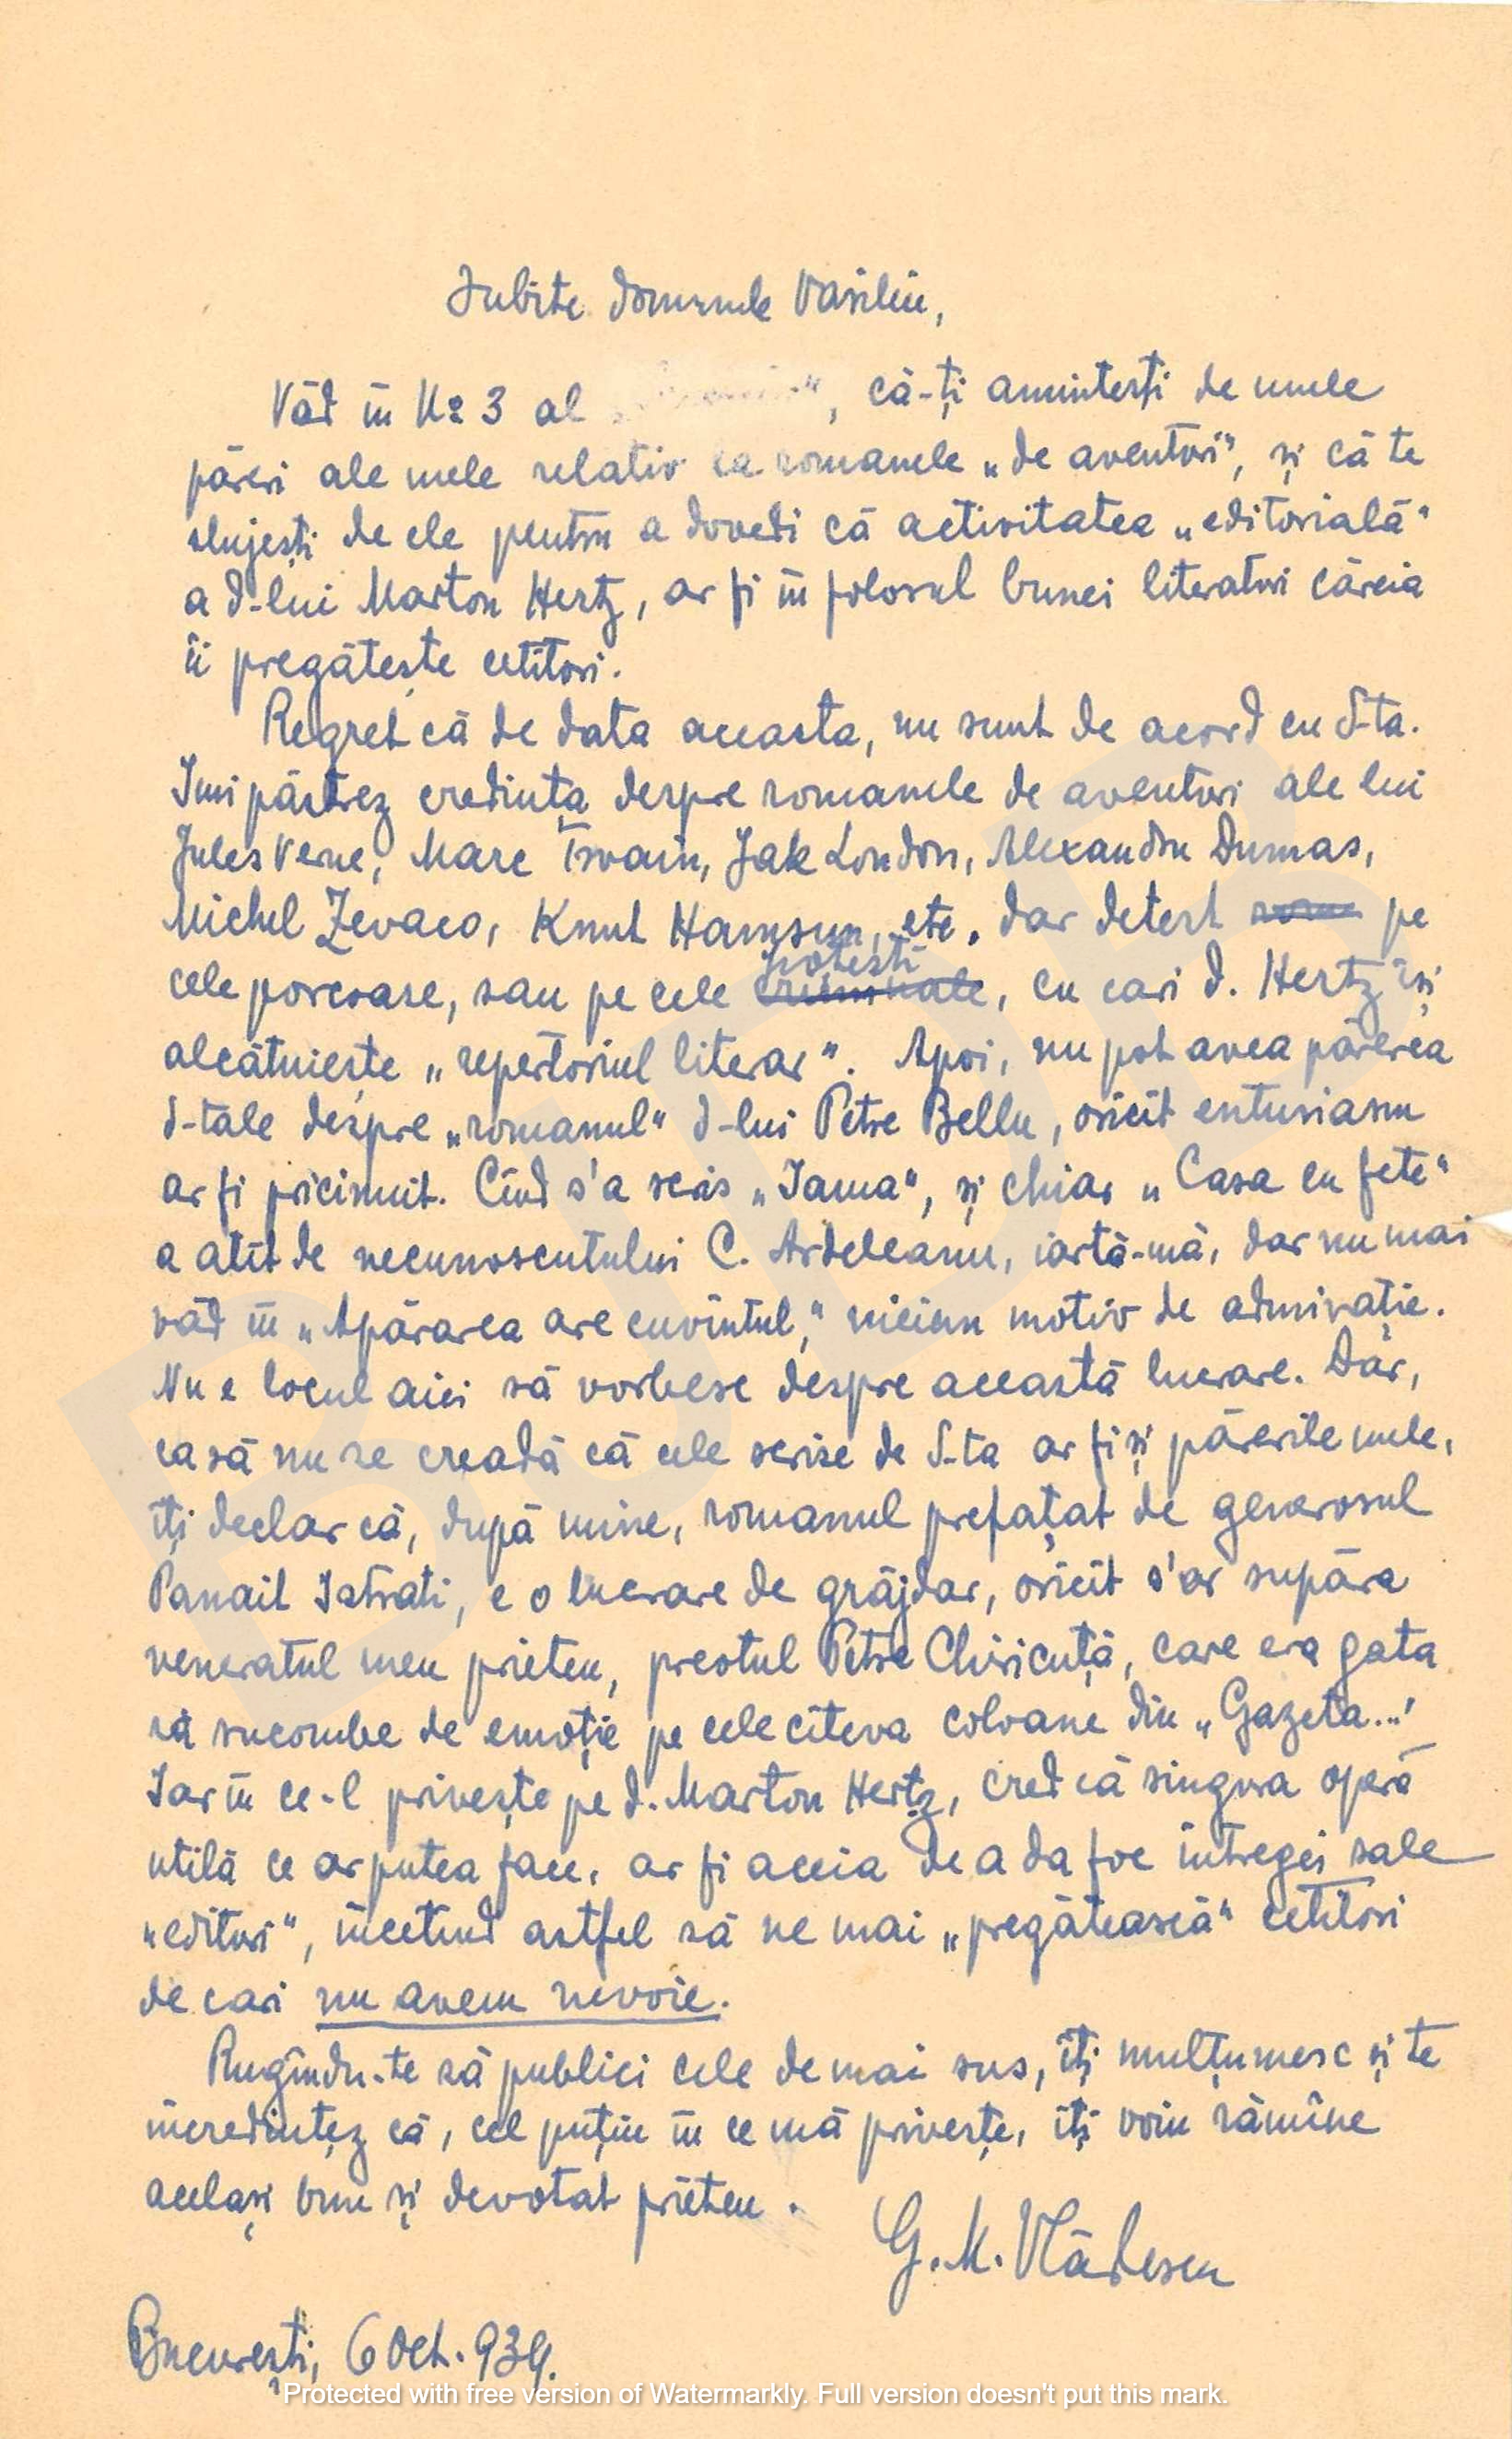 Iubite domnule Vasiliu,
Văd în No 3 al , că-ți amintești de unele
păreri ale mele relativ la romanele „de aventuri”, și că te
slujești de ele pentru a dovedi că activitatea „editorială”
a d-lui Marton Hertz, ar fi în folosul bunei literaturi căreia
îi pregătește cetitori.
Regret că de data aceasta, nu sunt de acord cu d-ta.
Imi păstrez credința despre romanele de aventuri ale lui
Jules Verne, Marc Twain, Jak London, Alexandru Dumas,
Michel Zevaco, Knut Hamsun, etc. dar detest pe
cele porcoase, sau pe cele criminale, cu cari d. Hertz își
alcătuiește „repertoriul literar”. Apoi, nu pot avea părerea
d-tale despre „romanul” d-lui Petre Bellu, oricît entusiasm
ar fi pricinuit. Cînd s'a scris „Iama”, și chiar „Casa cu fete”
a atît de necunoscutului C. Ardeleanu, iartă-mă, dar nu mai
văd în „Apărarea are cuvîntul,” niciun motiv de admirație.
Nu e locul aici să vorbesc despre această lucrare. Dar,
ca să nu se creadă că cele scrise de d-ta ar fi și părerile mele,
îți declar că, după mine, romanul prefațat de generosul
Panait Istrati, e o lucrare de grăjdar, oricît s'ar supăra
veneratul meu prieten, preotul Petre Chiricuță, care era gata
să sucombe de emoție pe cele cîteva coloane din „Gazeta...”
Iar în ce-l privește pe d. Marton Hertz, cred că singura operă
utilă ce ar putea face, ar fi aceia de a da foc întregei sale
„edituri”, încetînd astfel să ne mai „pregătească” cetitori
de cari nu avem nevoie.
Rugîndu-te să publici cele de mai sus, îți mulțumesc și te
încredințez că, cel puțin în ce mă privește, îți voiu rămîne
același bun și devotat prieten.
G. M. Vlădescu
București, 6 Oct. 939.
Protected with free version of Watermarkly. Full version doesn't put this mark.